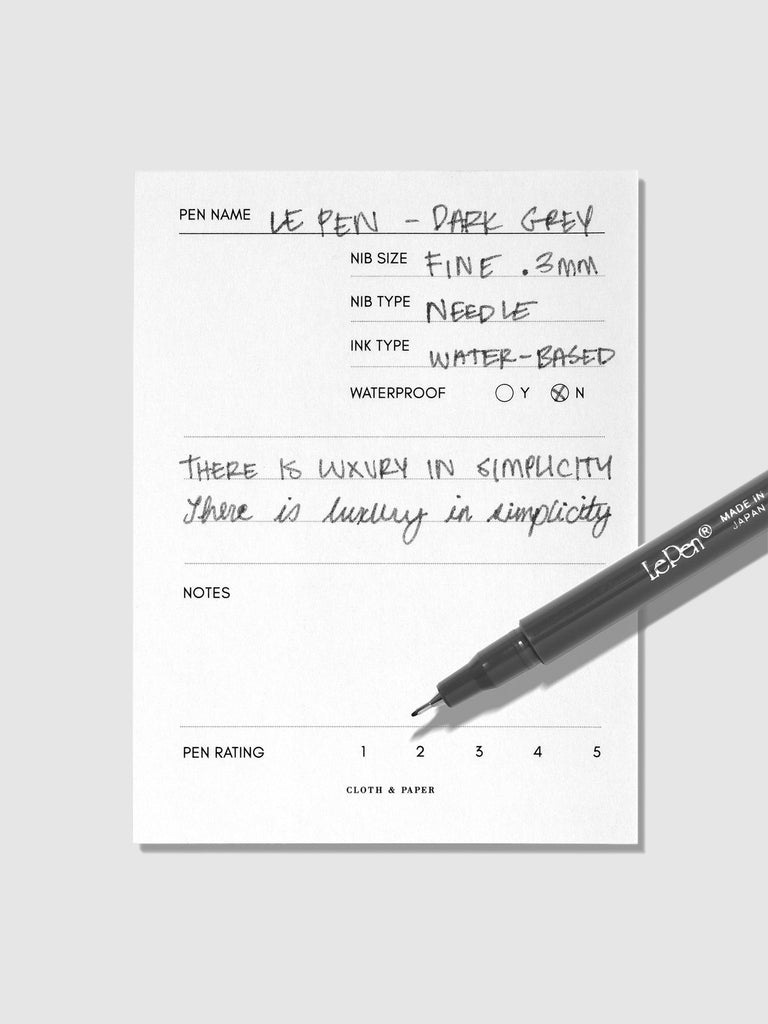 PEN NAME LE PEN - DARK GREY
NIB SIZE FINE .3MM
NIB TYPE NEEDLE
INK TYPE WATER-BASED
WATERPROOF Y N
THERE IS LUXURY IN SIMPLICITY
There is luxury in simplicity
LePen® MADE IN
JAPAN
NOTES
PEN RATING 1 2 3 4 5
CLOTH & PAPER